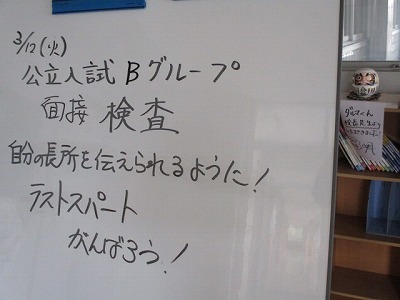 3/12(火)
公立入試 Bグループ
面接 検査
自分の長所を伝えられるように!
ラストスパート
がんばろう!